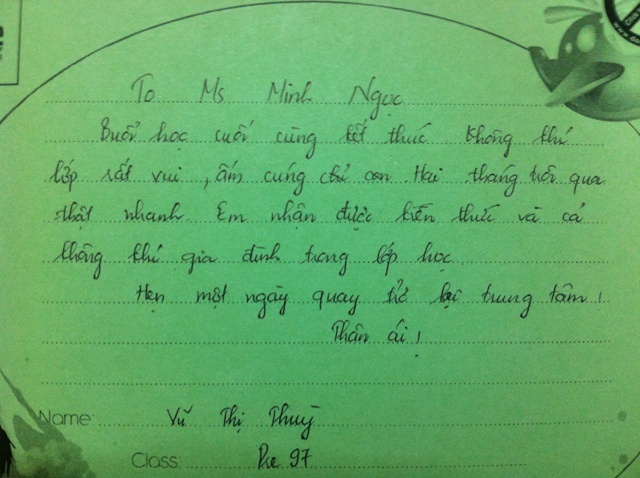 To Ms Minh Ngọc
Buổi học cuối cùng kết thúc. Không khí
lớp rất vui, ấm cúng chứ con. Hai tháng trôi qua
thật nhanh. Em nhận được kiến thức và cả
không khí gia đình trong lớp học.
Hẹn một ngày quay trở lại trung tâm!
Thân ái!
Name: Vũ Thị Thuỳ
Class: Pre 97